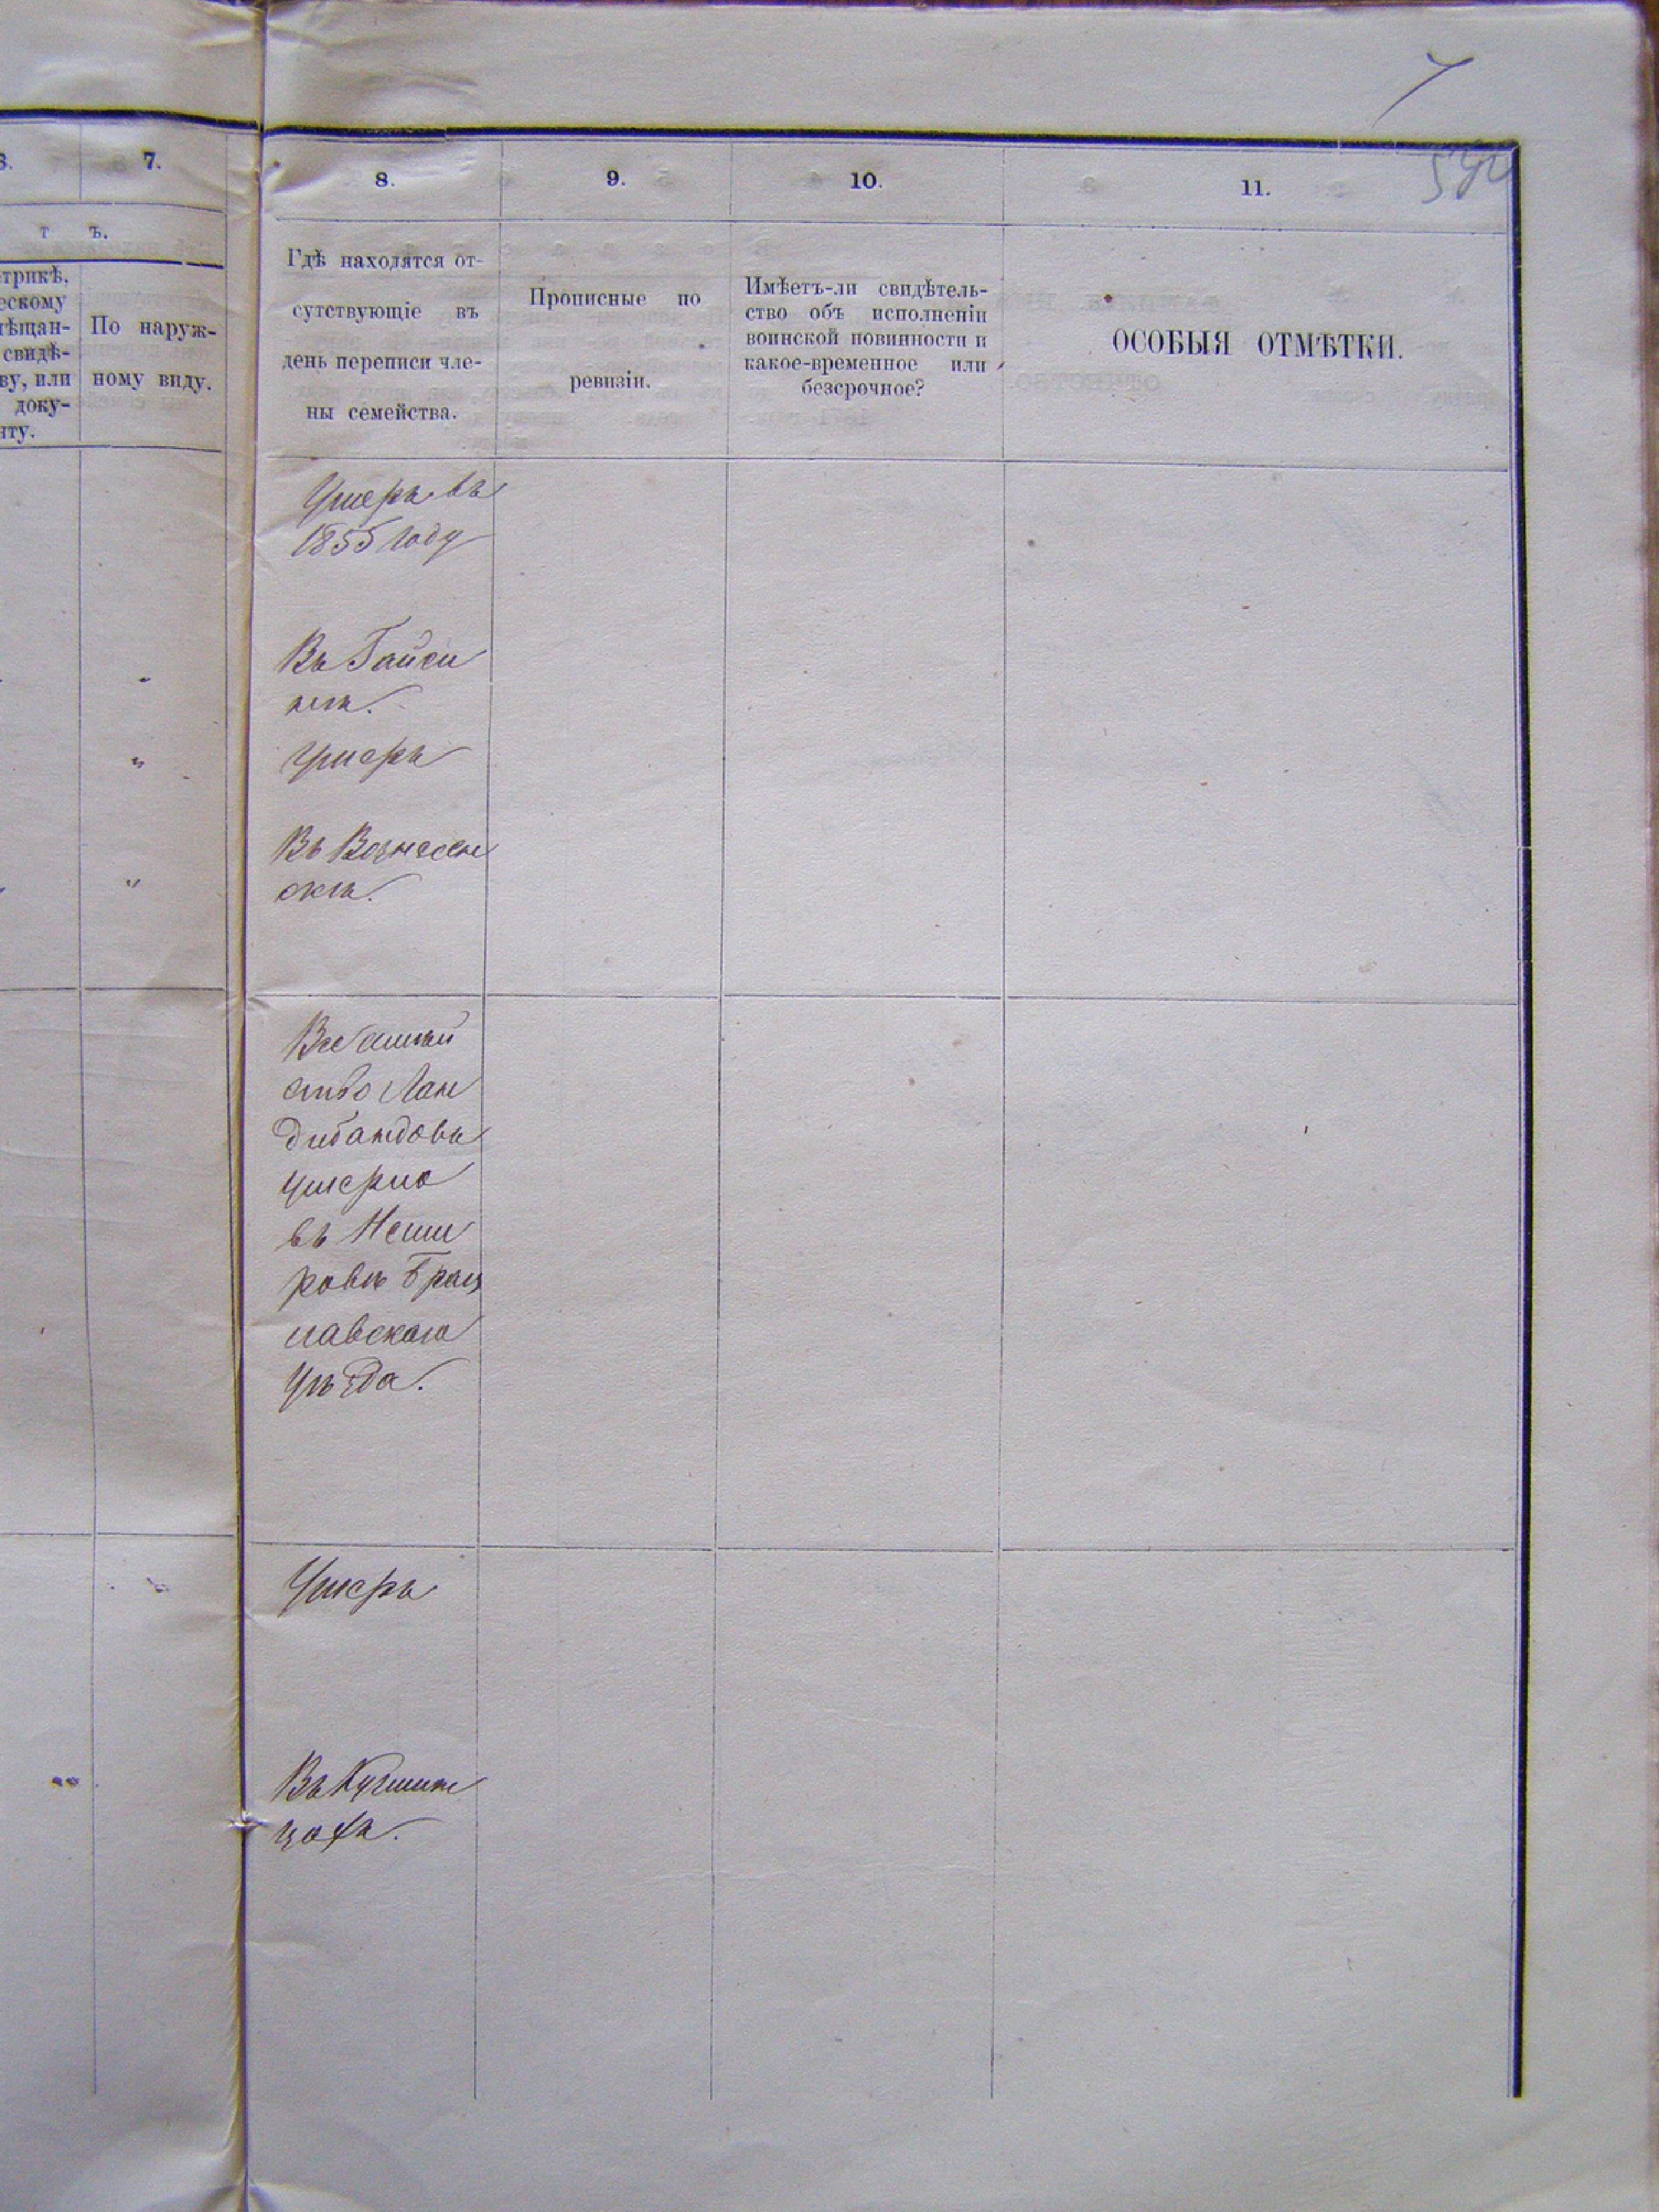 7.
8.
9.
10.
11.
т ъ.
трикѣ,
ескому
ѣщан-
свидѣ-
ву, или
доку-
нту.
По наруж-
ному виду.
Гдѣ находятся от-
сутствующіе въ
день переписи чле-
ны семейства.
Прописные по
ревизіи.
Имѣетъ-ли свидѣтель-
ство объ исполненіи
воинской повинности и
какое-временное или
безсрочное?
ОСОБЫЯ ОТМѢТКИ.
Умеръ въ
1855 году
Въ Гайси
нѣ.
Умеръ
Въ Вознесен
скѣ.
Все семей
ство Лан
дибандовъ
умерло
въ Неми
ровѣ Брац
лавскаго
уѣзда.
Умеръ